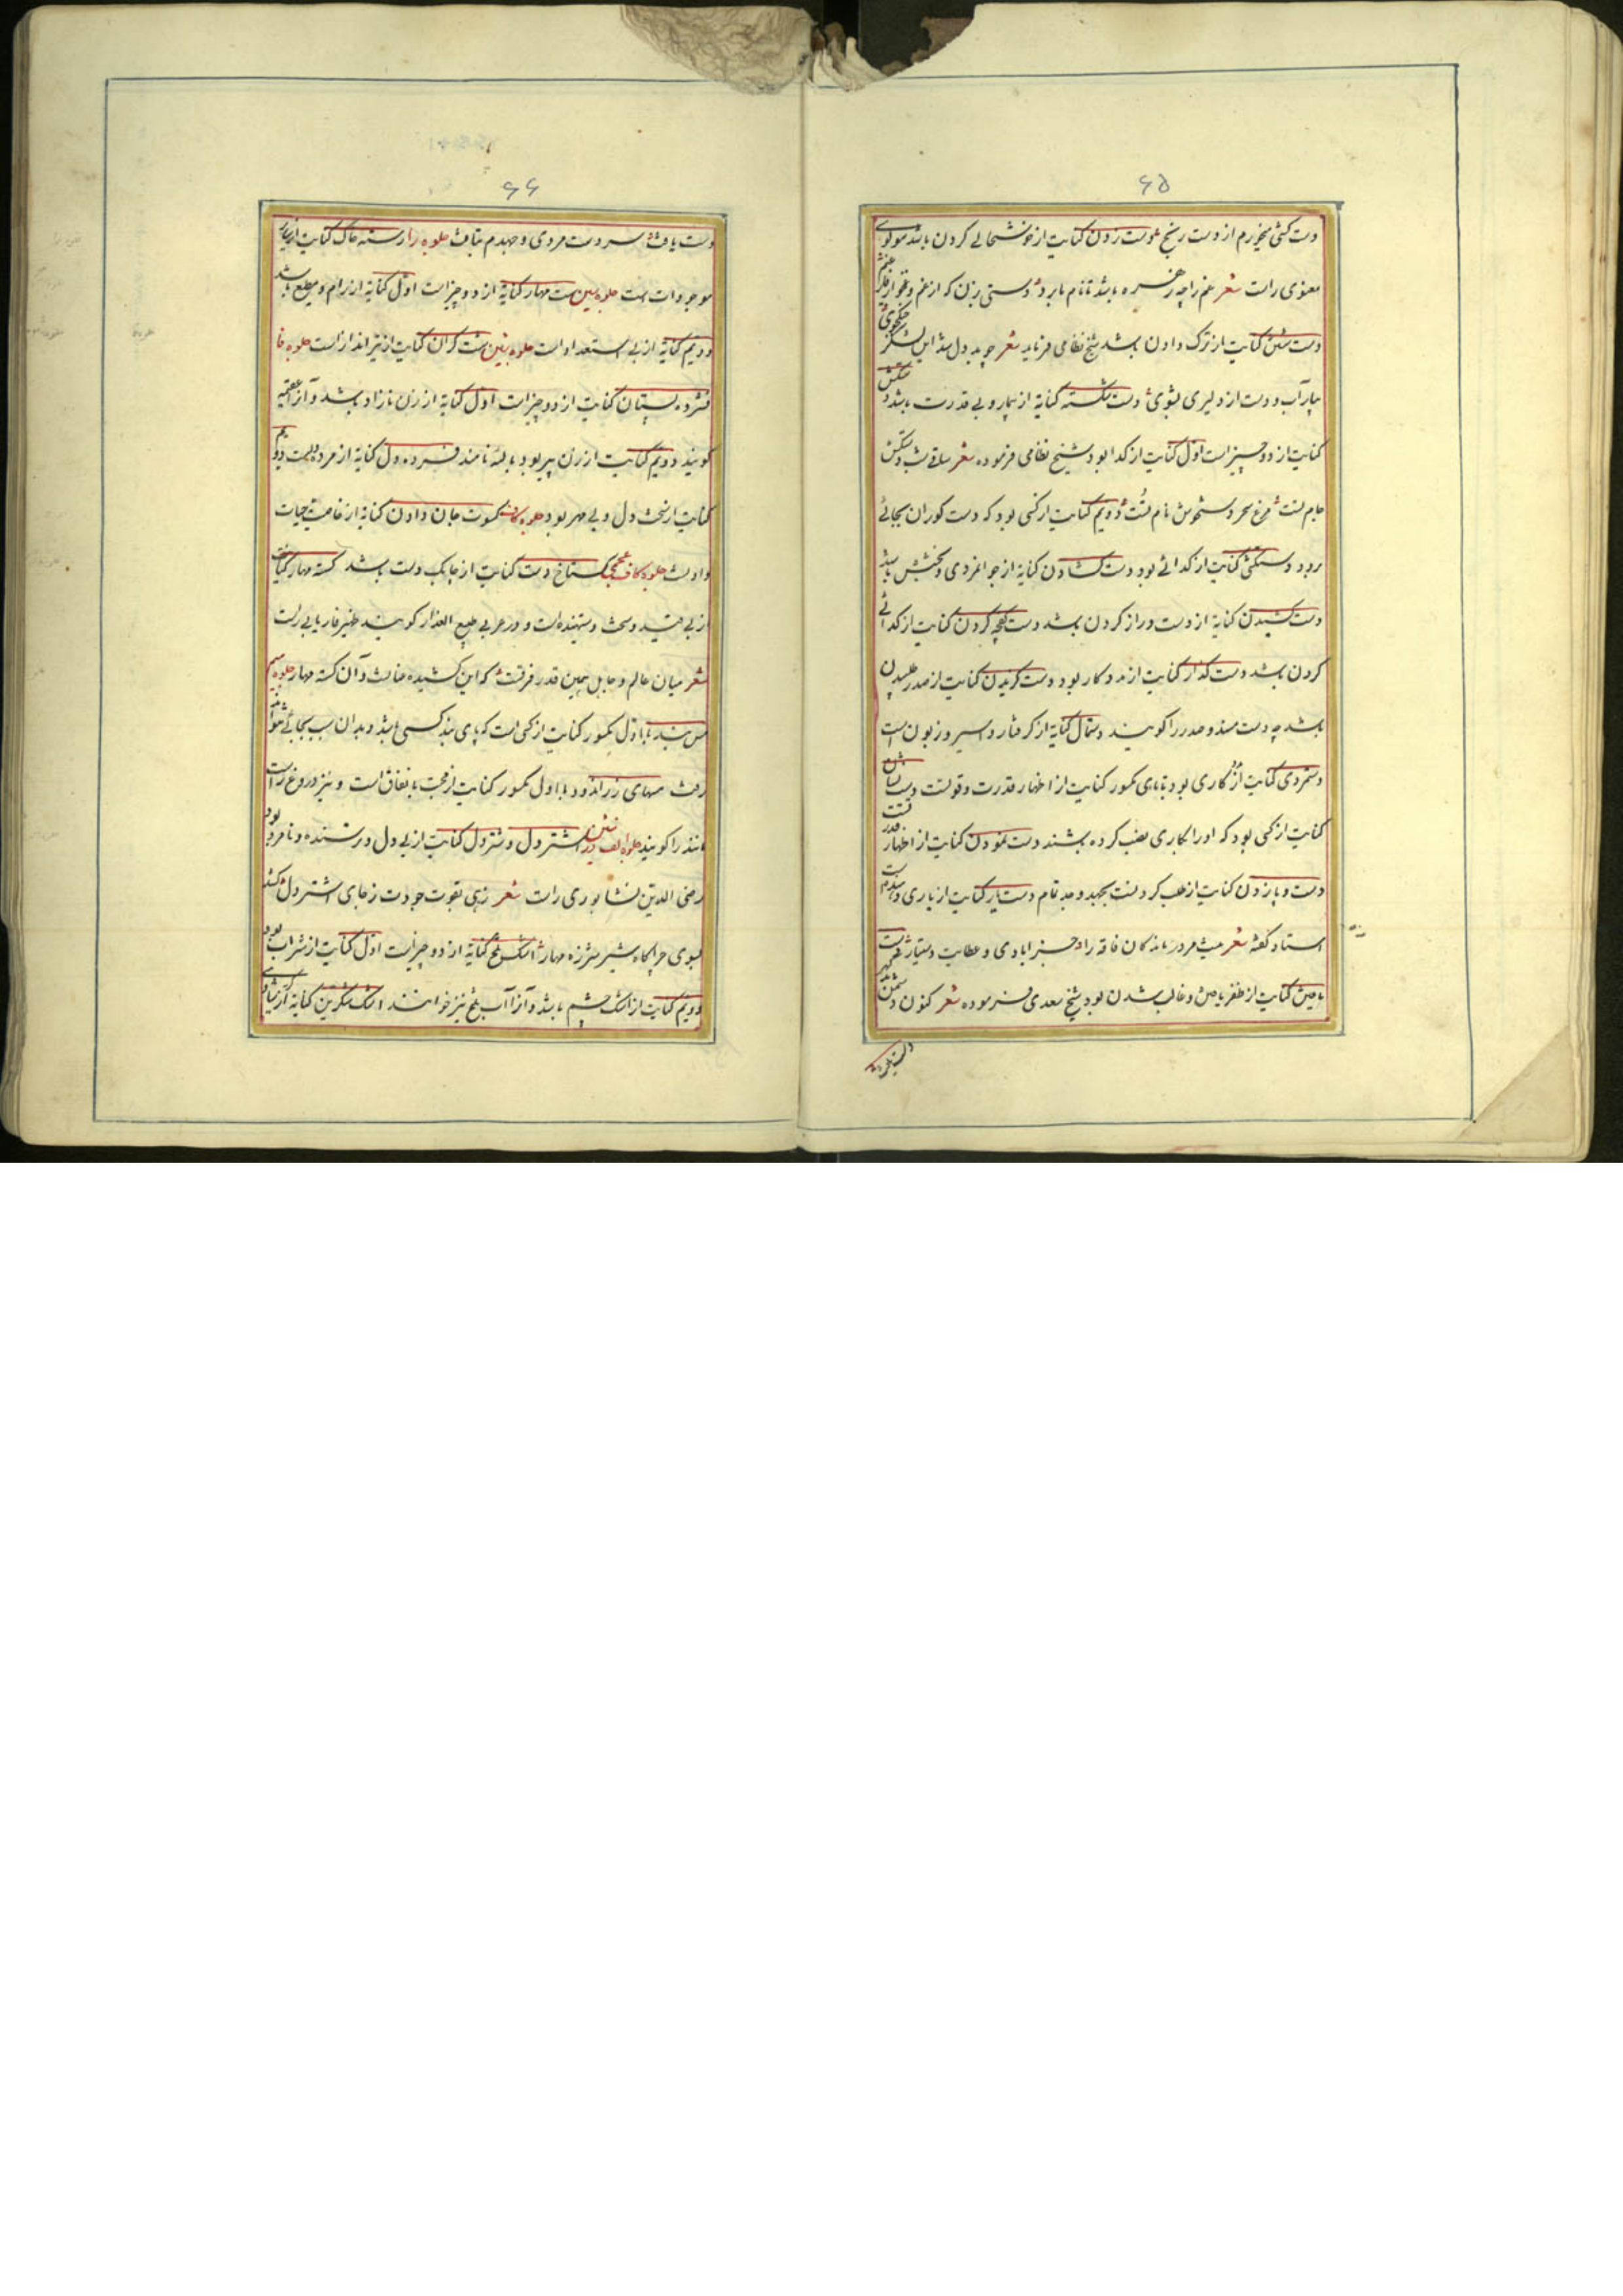 ۶۵
دست کسی میخورم از دست رنج دست زدن کنایت از خوشحالی کردن باشد مولوی
معنوی راست شعر غم را چه زهره باشد تا نام ما برد دستی بزن که از غم و غمخوار فارغیم
دست شستن کنایت از ترک دادن باشد شیخ نظامی فرماید شعر چو بددل شد این لشکر جنگجوی
بیار آب و دست از دلیری بشوی دست شکسته کنایه از بیکار و بی قدرت باشد
کنایت از دو چیز است اول کنایت از گدا بود شیخ نظامی فرموده شعر ساقی شب دستکش
جام تست مرغ سحر دستخوش نام تست دویم کنایت از کسی بود که دست کوران بجائی
برد و دستکشی کنایت از گدائی بود دست گشادن کنایه از جوانمردی و بخشش باشد
دست کشیدن کنایه از دست دراز کردن باشد دست کفچه کردن کنایت از گدائی
کردن باشد دست گذار کنایت از مددکار بود دست گزیدن کنایت از صدر طلبیدن
باشد چه دست مسند و صدر را گویند دستمال کنایه از گرفتار و اسیر و زبون است
دستمردی کنایت از یاری بود با یای مکسور کنایت از اظهار قدرت و قوتست دست نشان
کنایت از کسی بود که او را بکاری نصب کرده باشند دست نمودن کنایت از اظهار قدرت
دست و پا زدن کنایت از طلب کردنست بجهد و جد تمام دستیار کنایت از یاری
استاد گفته شعر درماندگان فاقه را و عطایت دستیار
یافتن کنایت از ظفر یافتن و غالب شدن بود شیخ سعدی فرموده شعر کنون دشمن
۶۶
دست یافت سر دست مردی و جهدم بتافت جلوه را رسته خاک کنایت از
موجودات است جلوه سین ست مهار کنایه از دو چیز است اول کنایه از رام و مطیع باشد
دویم کنایه از بی استعداد است جلوه شین شست گران کنایت از تیرانداز است جلوه فا
فسرده پستان کنایت از دو چیز است اول کنایه از زن نازاد باشد و آنرا عقیمه
گویند دویم کنایت از زن پیر بود یائسه نامند فسرده دل کنایه از مرده دلست دویم
کنایت از سخت دل و بی مهر بود جلوه کاف کسوت جان دادن کنایه از خاصیت حیات
دادنست جلوه کاف عجمی گستاخ دست کنایت از چابک دست باشد گسسته مهار کنایت
از بی قید و سخت و ستهنده است و در عربی خلیع العذار گویند ظهیر فاریابی راست
شعر میان عالم و جاهل همین قدر فرقست که این کشیده عنانست و آن گسسته مهار جلوه میم
مس با اول مکسور کنایت از کسی است که پای بند کسی باشد و بدان سبب بجائی نتواند
رفت مسهای زر اندود با اول مکسور کنایت از محبت با نفاق است و نیز دروغ راست
مانند را گویند جلوه الف در شین اشتر دل و شتر دل کنایت از بی دل و ترسنده و نامرد بود
رضی الدین نشابوری راست شعر زهی بقوت جودت ز جای اشتر دل
بسوی چراگاه شیر شرزه مهار اشک تلخ کنایه از دو چیز است اول کنایت از شراب بود
دویم کنایت از اشک چشم باشد و آنرا آب تلخ نیز خوانند اشک شکرین کنایه از
دست یافت